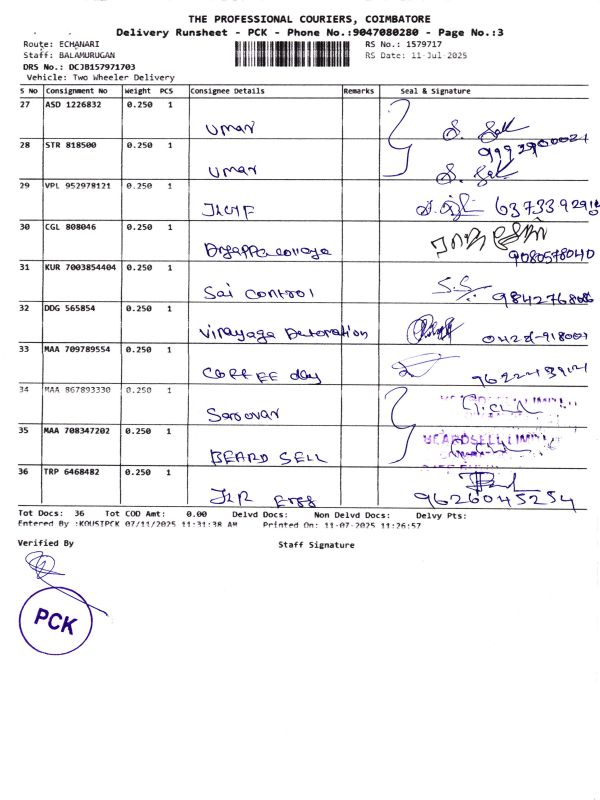 THE PROFESSIONAL COURIERS, COIMBATORE
Delivery Runsheet - PCK - Phone No.:9047080280 - Page No.:3
Route: ECHANARI
RS No.: 1579717
Staff: BALAMURUGAN
RS Date: 11-Jul-2025
DRS No.: DCJB157971703
Vehicle: Two Wheeler Delivery
S No Consignment No Weight PCS Consignee Details Remarks Seal & Signature
27 ASD 1226832 0.250 1
umar
28 STR 818500 0.250 1
umar
29 VPL 952978121 0.250 1
30 CGL 808046 0.250 1
9080578040
31 KUR 7003854404 0.250 1
Sai Control S.S
32 DDG 565854 0.250 1
33 MAA 709789554 0.250 1
COFFEE day
34 MAA 867893330 0.250 1
Sarovar
35 MAA 708347202 0.250 1
BEARDSELL LIMIT
BEARD SELL
36 TRP 6468482 0.250 1
9626045254
Tot Docs: 36 Tot COD Amt: 0.00 Delvd Docs: Non Delvd Docs: Delvy Pts:
Entered By :KOUSIPCK 07/11/2025 11:31:38 AM Printed On: 11-07-2025 11:26:57
Verified By Staff Signature
PCK